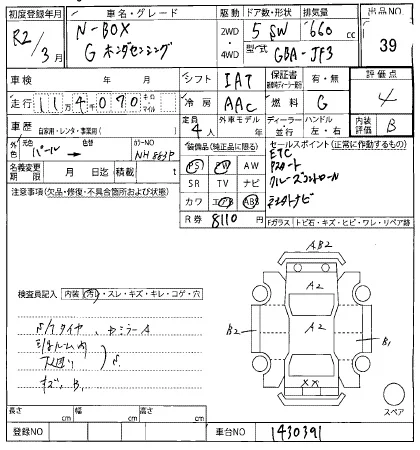 初度登録年月
R2/3月
車名・グレード
N-BOX
G ホンダセンシング
駆動
2WD
4WD
ドア数・形状
5 SW
排気量
660 cc
型式
6BA-JF3
出品NO
39
車検 年 月
シフト
IAT
保証書
有・無
評価点
4
走行
114070
冷房
AAC
燃料
G
車歴
自家用・レンタ・事業用( )
定員
4人
外車モデル
年
ディーラー
並行
ハンドル
左・右
内装
B
外色
元色
パール →
カラーNO
NH883P
装備品(純正品に限る)
PS PW AW
SR TV ナビ
カワ エアB ABS
R券 8110 円
セールスポイント(正常に作動するもの)
ETC
Pスタート
クルーズコントロール
名義変更期限 月 日迄
積載 t
注意事項(欠品・修復・不具合箇所および状態)
Fガラス トビ石・キズ・ヒビ・ワレ・リペア跡
検査員記入
内装(汚れ・スレ・キズ・キレ・コゲ・穴
AB2
A2
A2
B2
B1
XX
スペア
キズ、B1
長さ cm
幅 cm
高さ cm
登録NO
車台NO
1430391